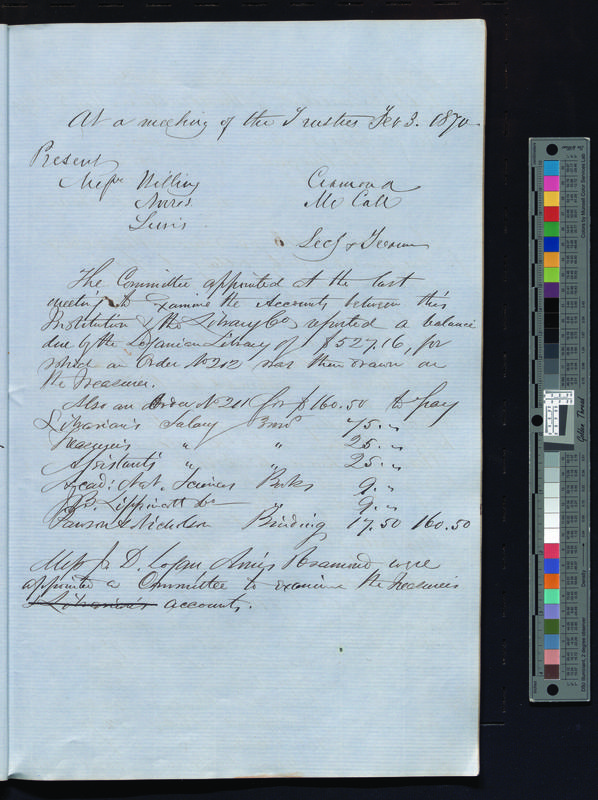 At a meeting of the Trustees Feb 3. 1870
Present
Messrs Willing Cramond
Ames Mc Call
Lewis
Secy & Treasurer
The Committee appointed at the last
meeting to examine the Accounts between this
Institution & the Library Co reported a balance
due by the Loganian Library of $527.16, for
which an Order No 212 was then drawn on
the Treasurer.
Also an Order No 211 for $160.50 to pay
Librarian's Salary 3 mos 75. "
Treasurer's " " 25. "
Assistants " " 25. "
Acad: Nat. Sciences Books 9. "
J. B. Lippincott & Co " 9. "
Pawson & Nicholson Binding 17.50 160.50
Messrs J. D. Logan Cramond were
appointed a Committee to examine the Treasurer's
Librarian's accounts.